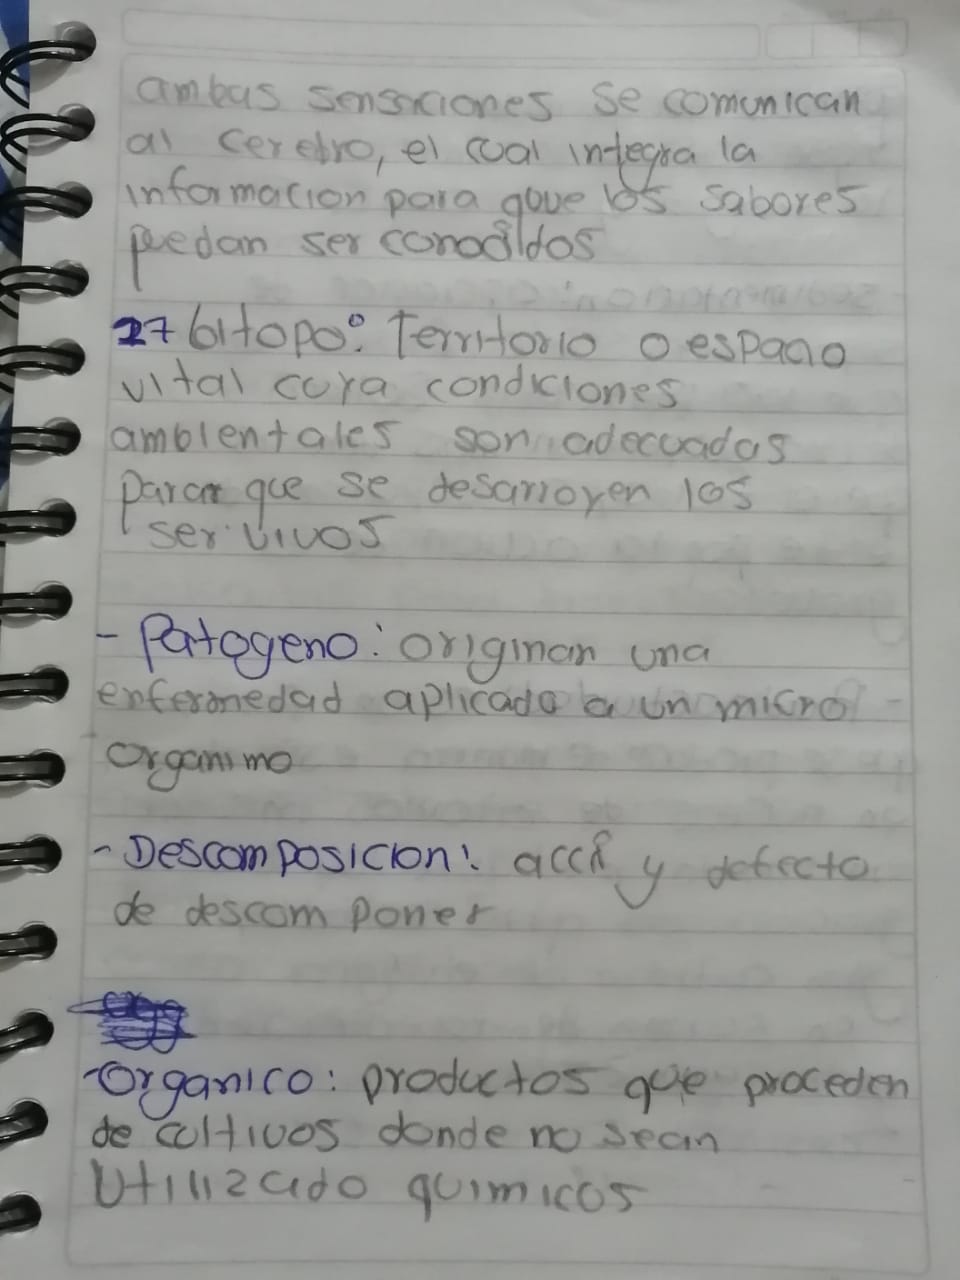 ambas sensaciones se comunican
al cerebro, el cual integra la
informacion para qoue los sabores
puedan ser conocidos
27 bitopo: Territorio o espacio
vital cuya condiciones
ambientales son adecuadas
para que se desarroyen los
ser vivos
- Patogeno: originan una
enfermedad aplicado a un micro
organimo
- Descomposicion: acci y defecto
de descomponer
-Organico: productos que proceden
de cultivos donde no sean
Utilizado quimicos